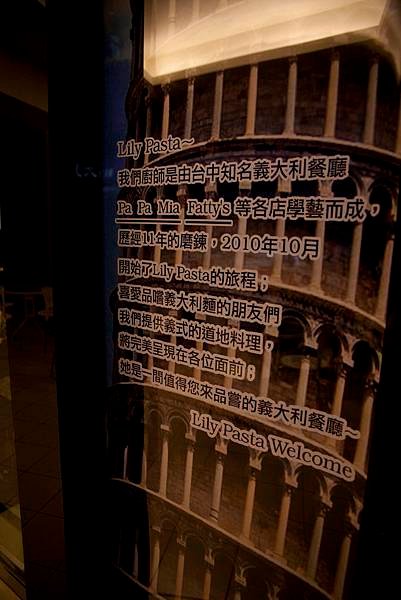 Lily Pasta~
我們廚師是由台中知名義大利餐廳
Pa Pa Mia Fatty's 等各店學藝而成，
歷經11年的磨鍊，2010年10月
開始了Lily Pasta的旅程；
喜愛品嚐義大利麵的朋友們
我們提供義式的道地料理，
將完美呈現在各位面前；
她是一間值得您來品嘗的義大利餐廳~
Lily Pasta Welcome